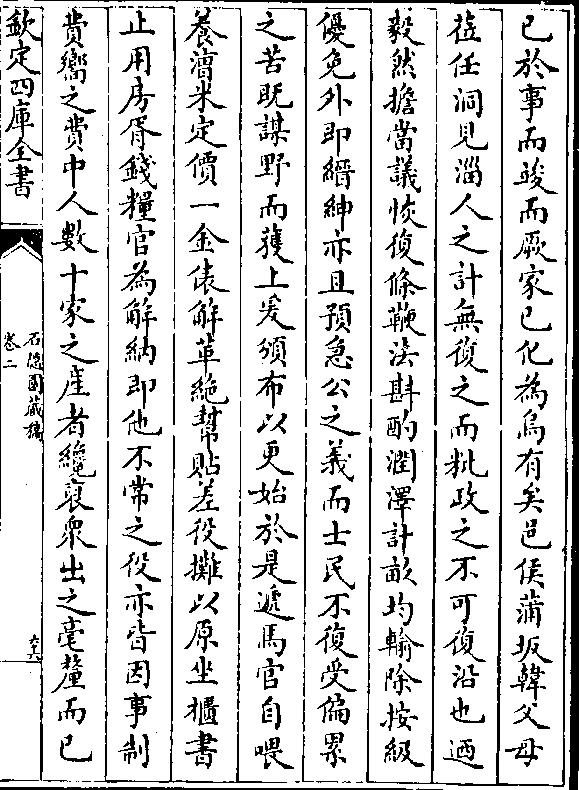 已於事而竣而厥家已化為烏有矣邑侯蒲坂韓父母
蒞任洞見淄人之計無復之而粃政之不可復沿也迺
毅然擔當議恢復條鞭法斟酌潤澤計畝均輸除按級
優免外即縉紳亦且預急公之義而士民不復受偏累
之苦既謀野而獲上爰頒布以更始於是遞馬官自喂
養漕米定價一金俵解革絶幫貼差役攤以原坐櫃書
止用房胥錢糧官為解納即他不常之役亦皆因事制
費嚮之費中人數十家之産者纔裒衆出之毫釐而已
欽定四庫全書
石隱園藏稿
卷二
六十六